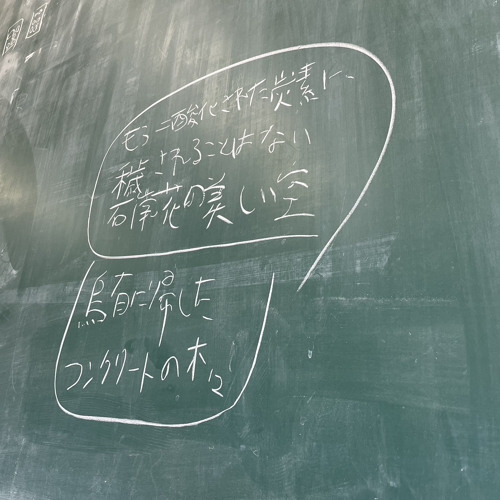 もう二酸化された炭素に
穢されることはない
石崖花の美しい空
烏有に帰した
コンクリートの木々